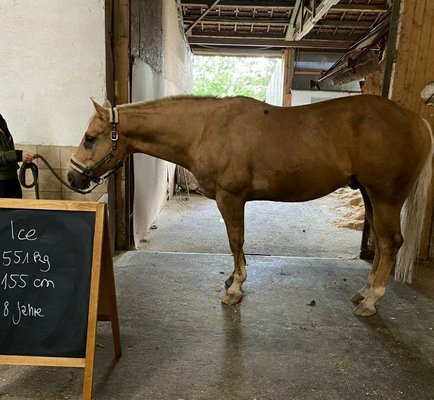 Ice
551 kg
155 cm
8 Jahre